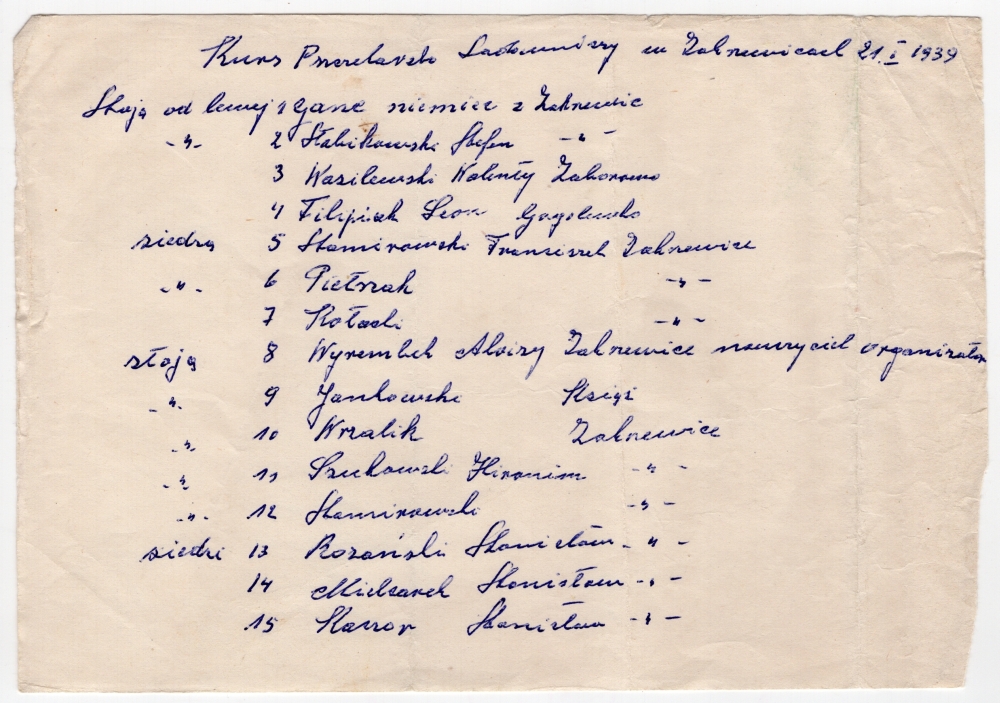 Kurs Pszczelarsko Sadowniczy w Zakrzewicach 21.I 1939
Stoją od lewej 1 Gane niemiec z Zakrzewic
-"- 2 Słabikowski Stefan -"-
3 Wasilewski Walenty Zaborowo
4 Filipiak Leon
siedzą 5 Stamirowski Franciszek Zakrzewice
-"- 6 Pietrzak -"-
7 Kołacki -"-
stoją 8 Wyrembek Alojzy Zakrzewice nauczyciel organizator
-"- 9 Jankowski Ksiądz
-"- 10 Wrzalik Zakrzewice
-"- 11 Szukowski Hironim -"-
-"- 12 Stamirowski -"-
siedzi 13 Rozański Stanisław -"-
14 Mielcarek Stanisław -"-
15 Stanisław -"-